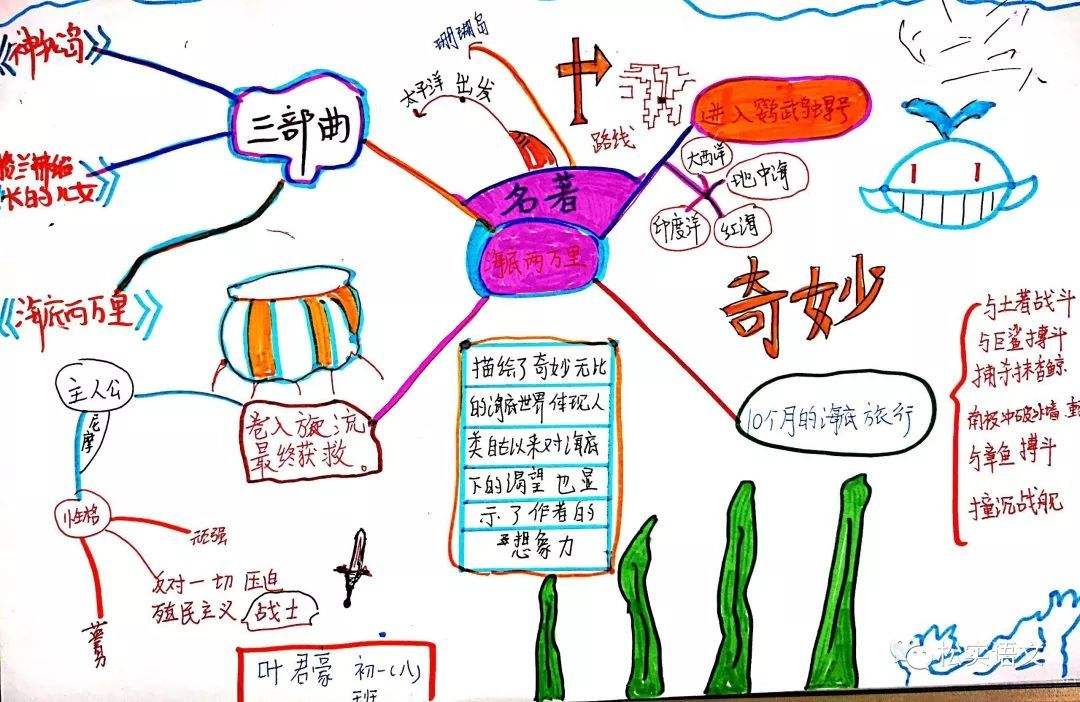 《神秘岛》
三部曲
格兰特船
长的儿女》
《海底两万里》
珊瑚岛
太平洋 出发
路线
名著
海底两万里
进入鹦鹉螺号
大西洋
地中海
印度洋
红海
奇妙
主人公
尼摩
性格
顽强
反对一切 压迫
殖民主义 战士
英勇
卷入旋流
最终获救。
描绘了奇妙无比
的海底世界体现人
类自古以来对海底
下的渴望 也显
示了作者的
想象力
10个月的海底旅行
与土著战斗
与巨鲨搏斗
捕杀抹香鲸
南极冲破冰墙
与章鱼搏斗
撞沉战舰
叶君豪 初一(八)
班
松实语文